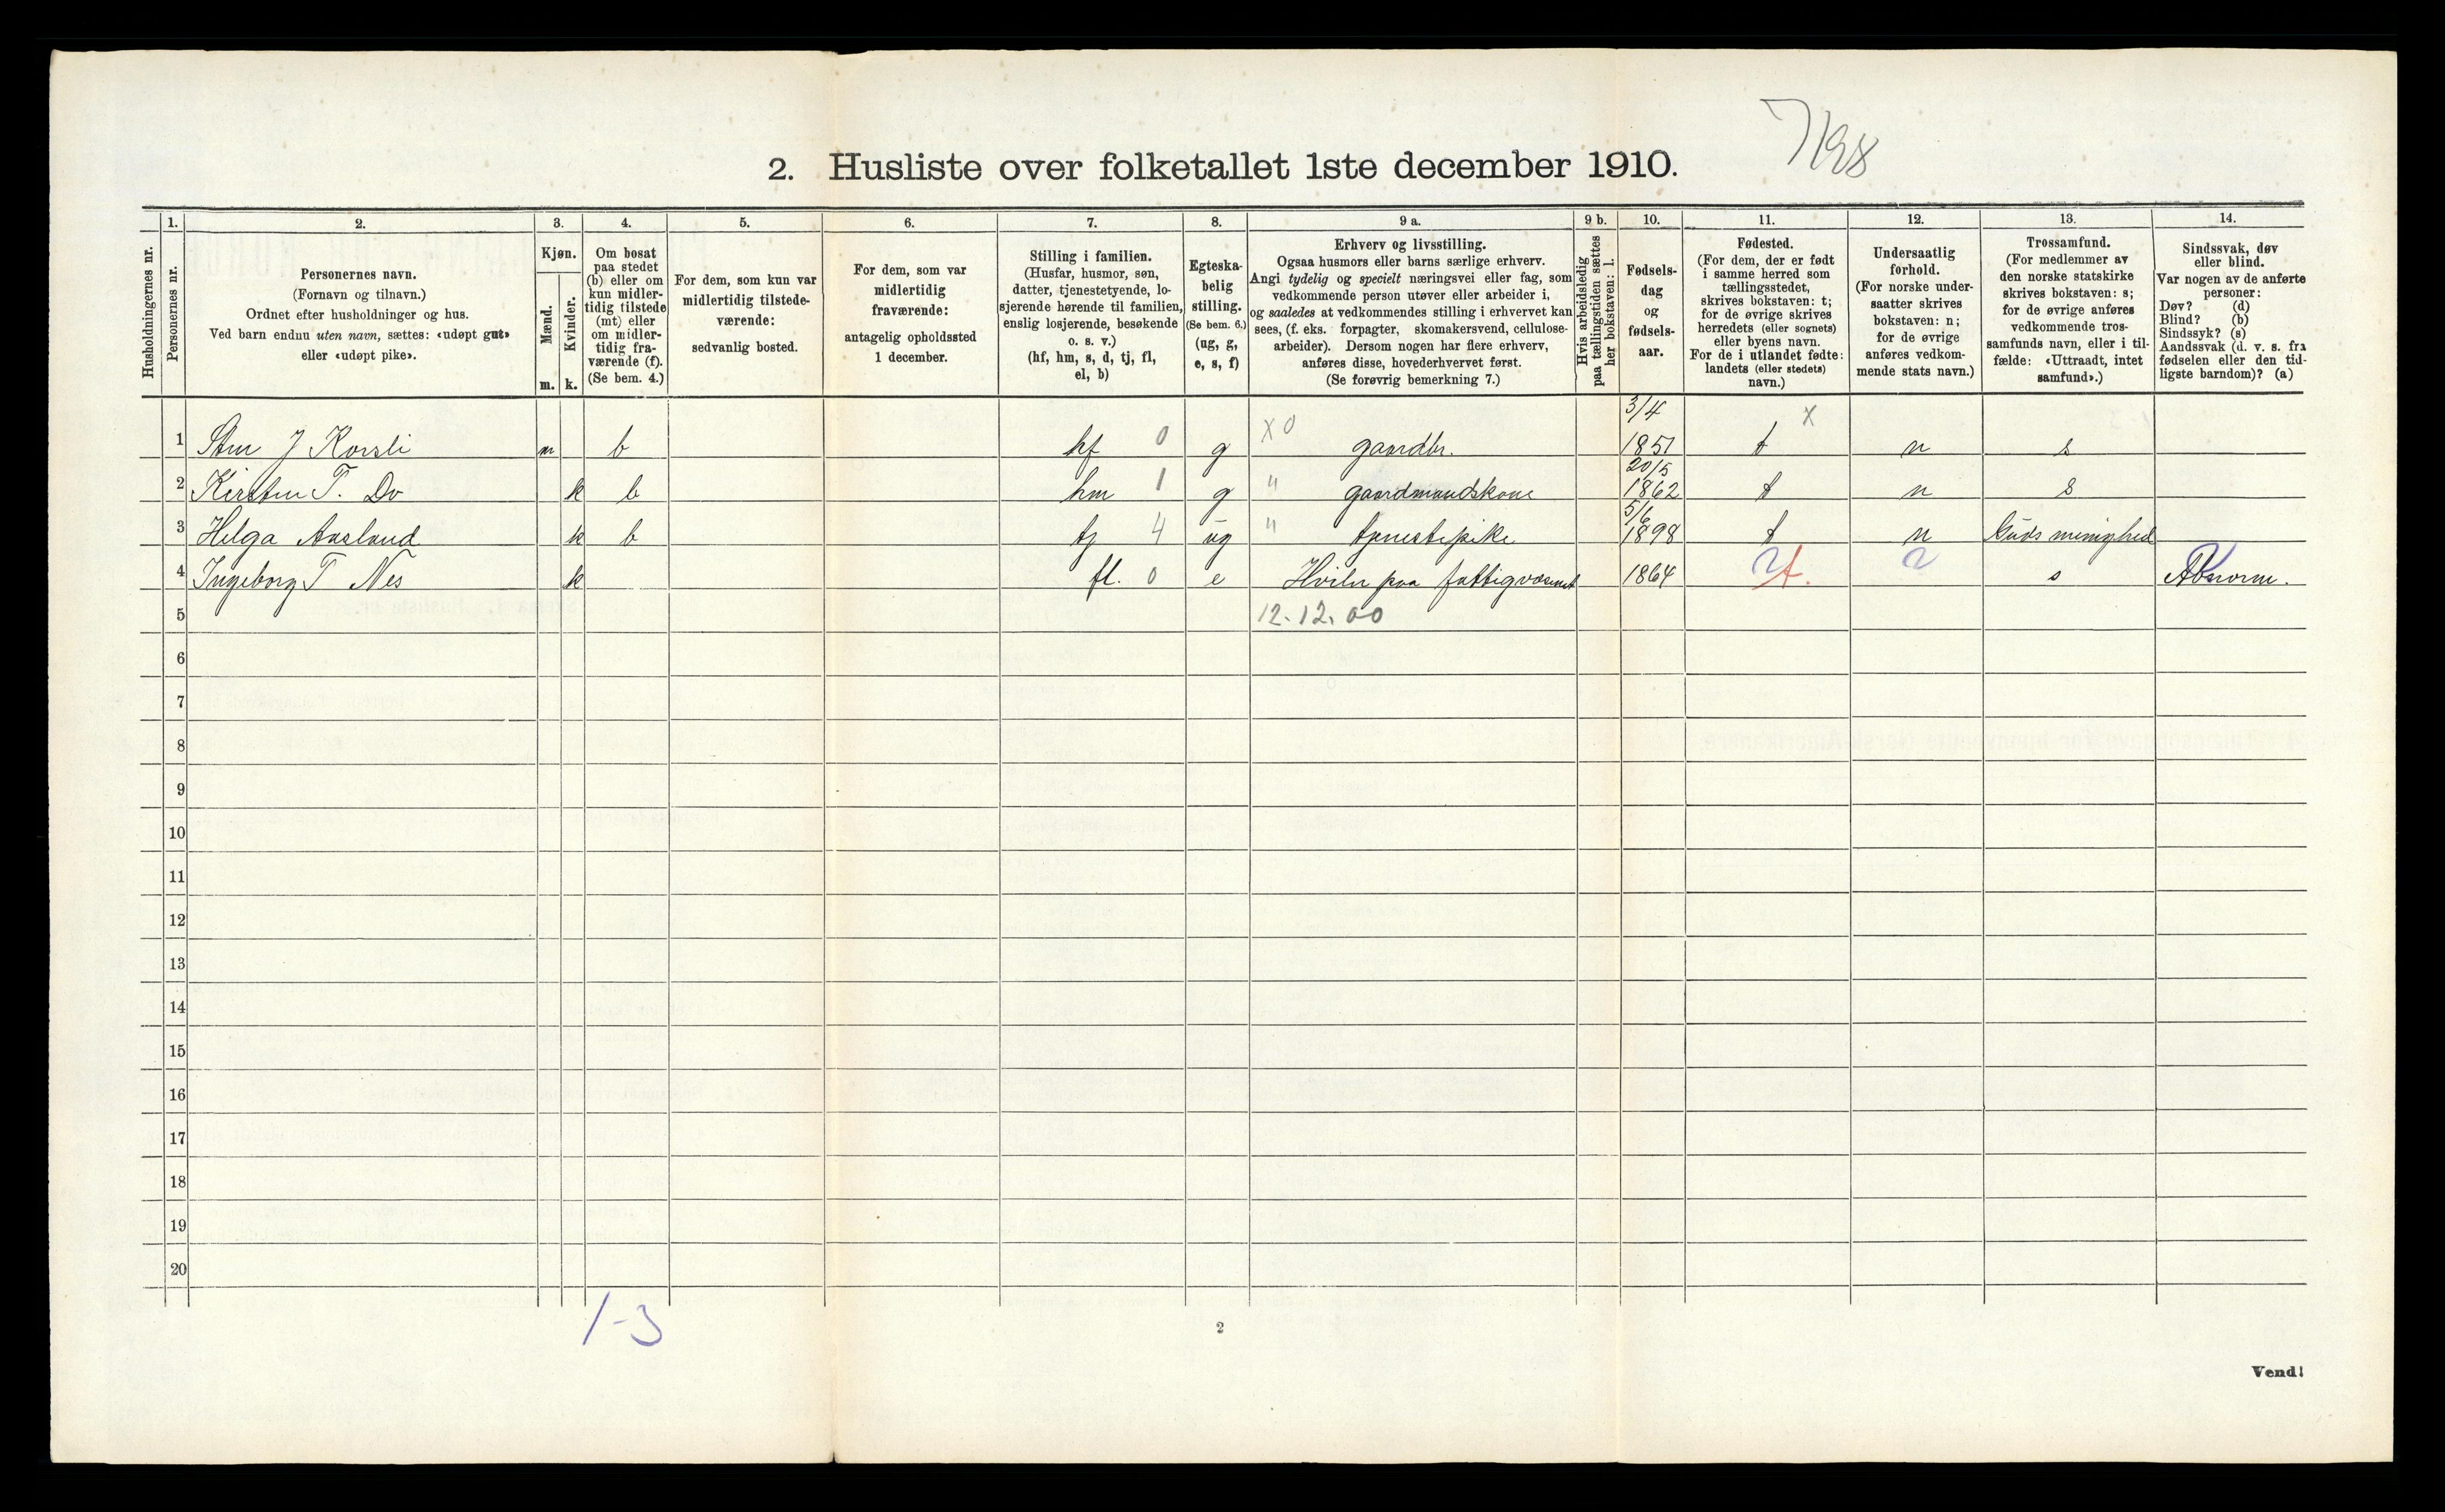 2. Husliste over folketallet 1ste december 1910.
Husholdningernes nr.
1.
Personernes nr.
2.
Personernes navn.
(Fornavn og tilnavn.)
Ordnet efter husholdninger og hus.
Ved barn endnu uten navn, sættes: «udøpt gut»
eller «udøpt pike».
3.
Kjøn.
Mænd.
Kvinder.
m.
k.
4.
Om bosat
paa stedet
(b) eller om
kun midler-
tidig tilstede
(mt) eller
om midler-
tidig fra-
værende (f).
(Se bem. 4.)
5.
For dem, som kun var
midlertidig tilstede-
værende:
sedvanlig bosted.
6.
For dem, som var
midlertidig
fraværende:
antagelig opholdssted
1 december.
7.
Stilling i familien.
(Husfar, husmor, søn,
datter, tjenestetyende, lo-
sjerende hørende til familien,
enslig losjerende, besøkende
o. s. v.)
(hf, hm, s, d, tj, fl,
el, b)
8.
Egteska-
belig
stilling.
(Se bem. 6.)
(ug, g,
e, s, f)
9 a.
Erhverv og livsstilling.
Ogsaa husmors eller barns særlige erhverv.
Angi tydelig og specielt næringsvei eller fag, som
vedkommende person utøver eller arbeider i,
og saaledes at vedkommendes stilling i erhvervet kan
sees, (f. eks. forpagter, skomakersvend, cellulose-
arbeider). Dersom nogen har flere erhverv,
anføres disse, hovederhvervet først.
(Se forøvrig bemerkning 7.)
9 b.
Hvis arbeidsledig
paa tællingstiden sættes
her bokstaven: l.
10.
Fødsels-
dag
og
fødsels-
aar.
11.
Fødested.
(For dem, der er født
i samme herred som
tællingsstedet,
skrives bokstaven: t;
for de øvrige skrives
herredets (eller sognets)
eller byens navn.
For de i utlandet fødte:
landets (eller stedets)
navn.)
12.
Undersaatlig
forhold.
(For norske under-
saatter skrives
bokstaven: n;
for de øvrige
anføres vedkom-
mende stats navn.)
13.
Trossamfund.
(For medlemmer av
den norske statskirke
skrives bokstaven: s;
for de øvrige anføres
vedkommende tros-
samfunds navn, eller i til-
fælde: «Uttraadt, intet
samfund».)
14.
Sindssvak, døv
eller blind.
Var nogen av de anførte
personer:
Døv? (d)
Blind? (b)
Sindssyk? (s)
Aandssvak (d. v. s. fra
fødselen eller den tid-
ligste barndom)? (a)
3/4 x
1 Sten J Korsli m b hf 0 g x 0 gaardbr. 1851 t n s
20/5
2 Kirsten T. Do k b hm 1 g " gaardmandskone 1862 t n s
5/6
3 Helga Aasland k b tj 4 ug " tjenestepike 1898 t n Guds menighed
4 Ingeborg T Nes k fl. 0 e Hviler paa fattigvæsenet 1864 t. s Abnorm.
5 12.12.00
6
7
8
9
10
11
12
13
14
15
16
17
18
19
20
1-3
2
Vend!